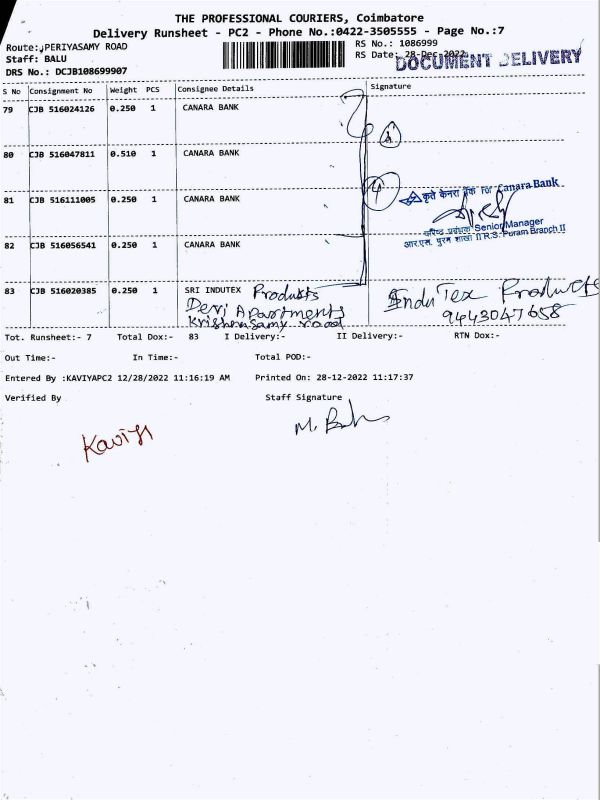 THE PROFESSIONAL COURIERS, Coimbatore
Delivery Runsheet - PC2 - Phone No.:0422-3505555 - Page No.:7
Route: PERIYASAMY ROAD
RS No.: 1086999
Staff: BALU
RS Date: 28-Dec-2022
DOCUMENT DELIVERY
DRS No.: DCJB108699907
S No Consignment No Weight PCS Consignee Details Signature
79 CJB 516024126 0.250 1 CANARA BANK
80 CJB 516047811 0.510 1 CANARA BANK
81 CJB 516111005 0.250 1 CANARA BANK
4
कृते केनरा बैंक For Canara Bank
वरिष्ठ प्रबंधक Senior Manager
आर.एस. पुरम शाखा II R.S. Puram Branch II
82 CJB 516056541 0.250 1 CANARA BANK
83 CJB 516020385 0.250 1 SRI INDUTEX Produkts
Devi Apartments
Krishnasamy road
InduTex Products
9443047658
Tot. Runsheet:- 7 Total Dox:- 83 I Delivery:- II Delivery:- RTN Dox:-
Out Time:- In Time:- Total POD:-
Entered By :KAVIYAPC2 12/28/2022 11:16:19 AM Printed On: 28-12-2022 11:17:37
Verified By Staff Signature
M. Balu